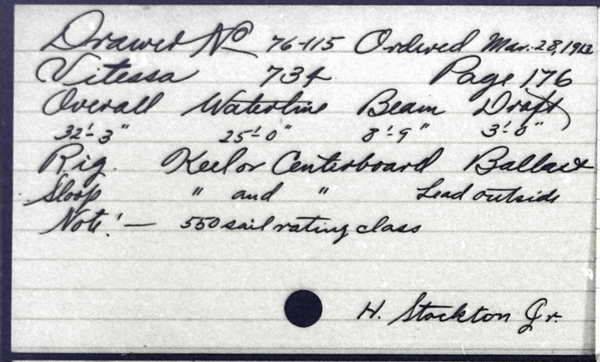 Drawer No 76-115 Ordered Mar. 28, 1912
Vitessa 734 Page 176
Overall Waterline Beam Draft
32'-3" 25'-0" 8'-9" 3'-0"
Rig. Keel or Centerboard Ballast
Sloop " and " Lead outside
Note:— 550 sail rating class
H. Stockton Jr.